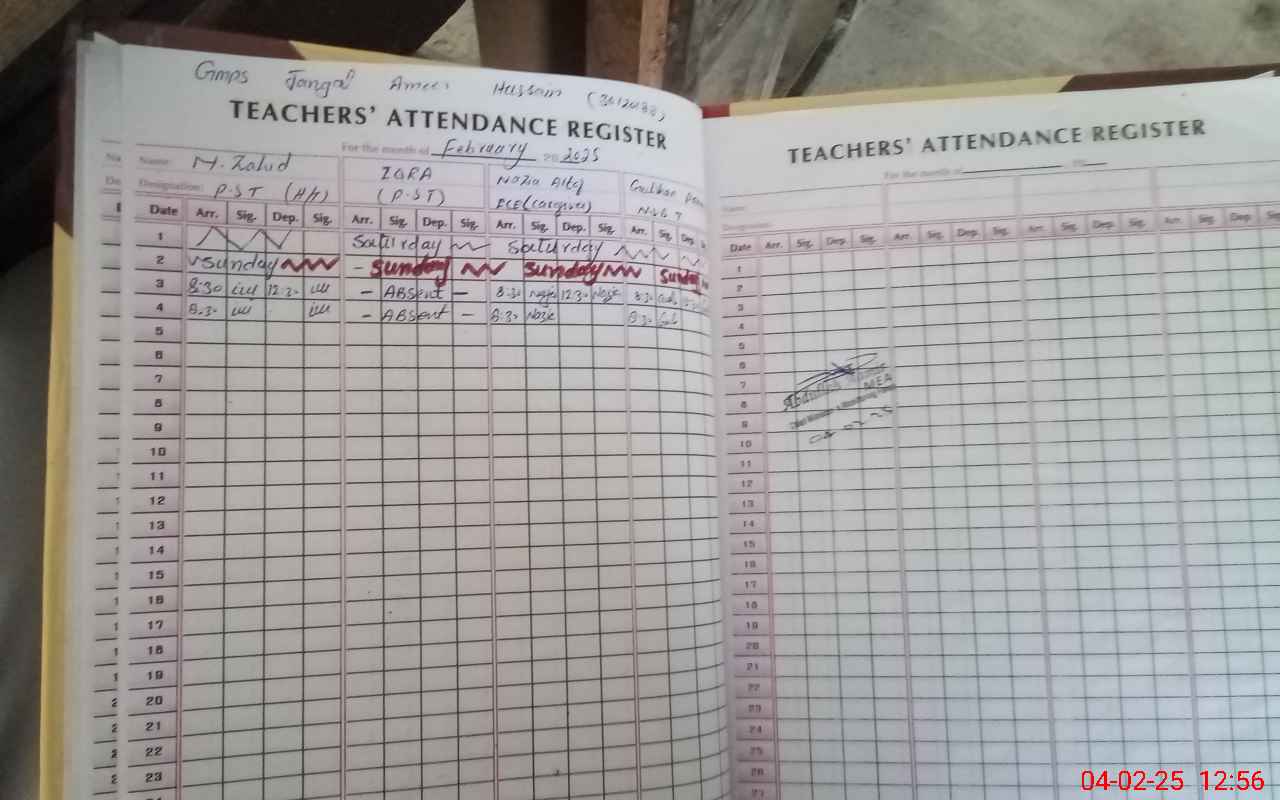 Gmps Jangal Ameer Hussain (30120188)
TEACHERS' ATTENDANCE REGISTER
For the month of February 20 2025
Name: M. Zahid IQRA Nazia Altaf
Designation: P.S.T (H/T) (P.S.T) ECE (caregiver)
Date Arr. Sig. Dep. Sig. Arr. Sig. Dep. Sig. Arr. Sig. Dep. Sig. Arr. Sig. Dep.
1 Saturday Saturday
2 Sunday - Sunday Sunday Sunday
3 8:30 12:30 - ABSent - 8:30 Nazia 12:30 Nazia 8:30
4 8:30 - ABSent - 8:30 Nazia 8:30
5
6
7
8
9
10
11
12
13
14
15
16
17
18
19
20
21
22
23
TEACHERS' ATTENDANCE REGISTER
For the month of
Name:
Designation:
Date Arr. Sig. Dep. Sig. Arr. Sig. Dep. Sig. Arr. Sig. Dep. Sig. Arr. Sig. Dep.
1
2
3
4
5
6
7
8
9
10
11
12
13
14
15
16
17
18
19
20
21
22
23
24
25
26
27
Abdullah
MEA
04-02-25 12:56